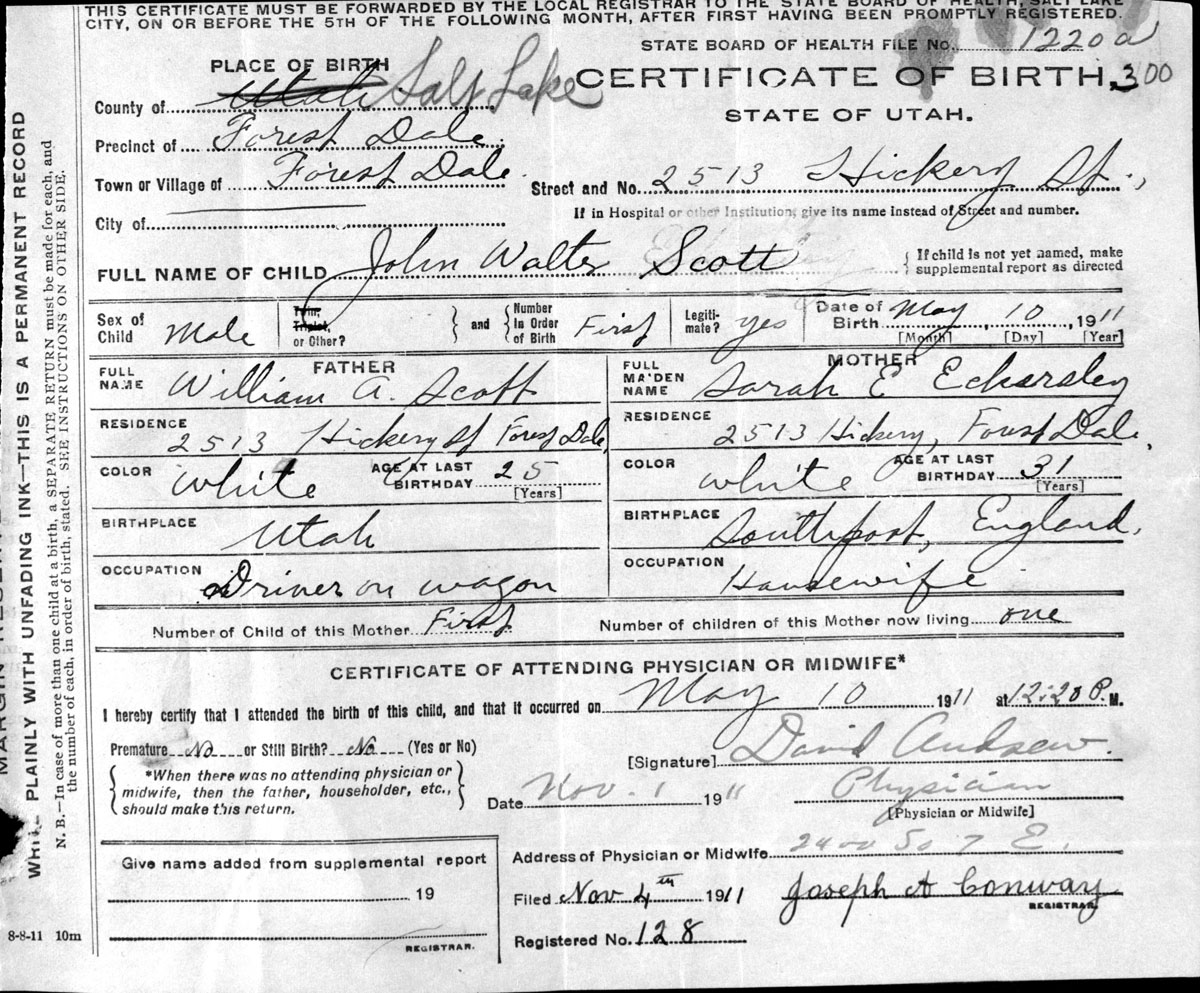 THIS CERTIFICATE MUST BE FORWARDED BY THE LOCAL REGISTRAR TO THE STATE BOARD OF HEALTH, SALT LAKE
CITY, ON OR BEFORE THE 5TH OF THE FOLLOWING MONTH, AFTER FIRST HAVING BEEN PROMPTLY REGISTERED.
STATE BOARD OF HEALTH FILE No. 1220a
PLACE OF BIRTH
CERTIFICATE OF BIRTH 300
County of Utah Salt Lake
STATE OF UTAH.
Precinct of Forest Dale
Town or Village of Forest Dale.
Street and No. 2513 Hickery St.,
City of
If in Hospital or other Institution, give its name instead of Street and number.
FULL NAME OF CHILD John Walter Scott
If child is not yet named, make
supplemental report as directed
Sex of Child Male
Twin, Triplet, or Other?
and
Number In Order of Birth First
Legiti-mate? yes
Date of Birth May, 10, 1911
[Month] [Day] [Year]
FATHER
MOTHER
FULL NAME William A. Scott
FULL MAIDEN NAME Sarah E Eckersley
RESIDENCE
2513 Hickery St Forest Dale,
RESIDENCE
2513 Hickery, Forest Dale,
COLOR White
AGE AT LAST BIRTHDAY 25
[Years]
COLOR White
AGE AT LAST BIRTHDAY 31
[Years]
BIRTHPLACE
Utah
BIRTHPLACE
Southport, England.
OCCUPATION
Driver on wagon
OCCUPATION
Housewife
Number of Child of this Mother First
Number of children of this Mother now living one
CERTIFICATE OF ATTENDING PHYSICIAN OR MIDWIFE*
I hereby certify that I attended the birth of this child, and that it occurred on May 10 1911 at 12:20 P. M.
Premature No or Still Birth? No (Yes or No)
[Signature] David Andrew.
*When there was no attending physician or
midwife, then the father, householder, etc.,
should make this return.
Date Nov. 1 1911
Physician
[Physician or Midwife]
Give name added from supplemental report
19
REGISTRAR.
Address of Physician or Midwife 2400 So 7 E.
Filed Nov 4th 1911
Joseph A Conway
REGISTRAR.
Registered No. 128
8-8-11 10m
PLAINLY WITH UNFADING INK—THIS IS A PERMANENT RECORD
N. B.—In case of more than one child at a birth, a SEPARATE RETURN must be made for each, and
the number of each, in order of birth, stated. SEE INSTRUCTIONS ON OTHER SIDE.